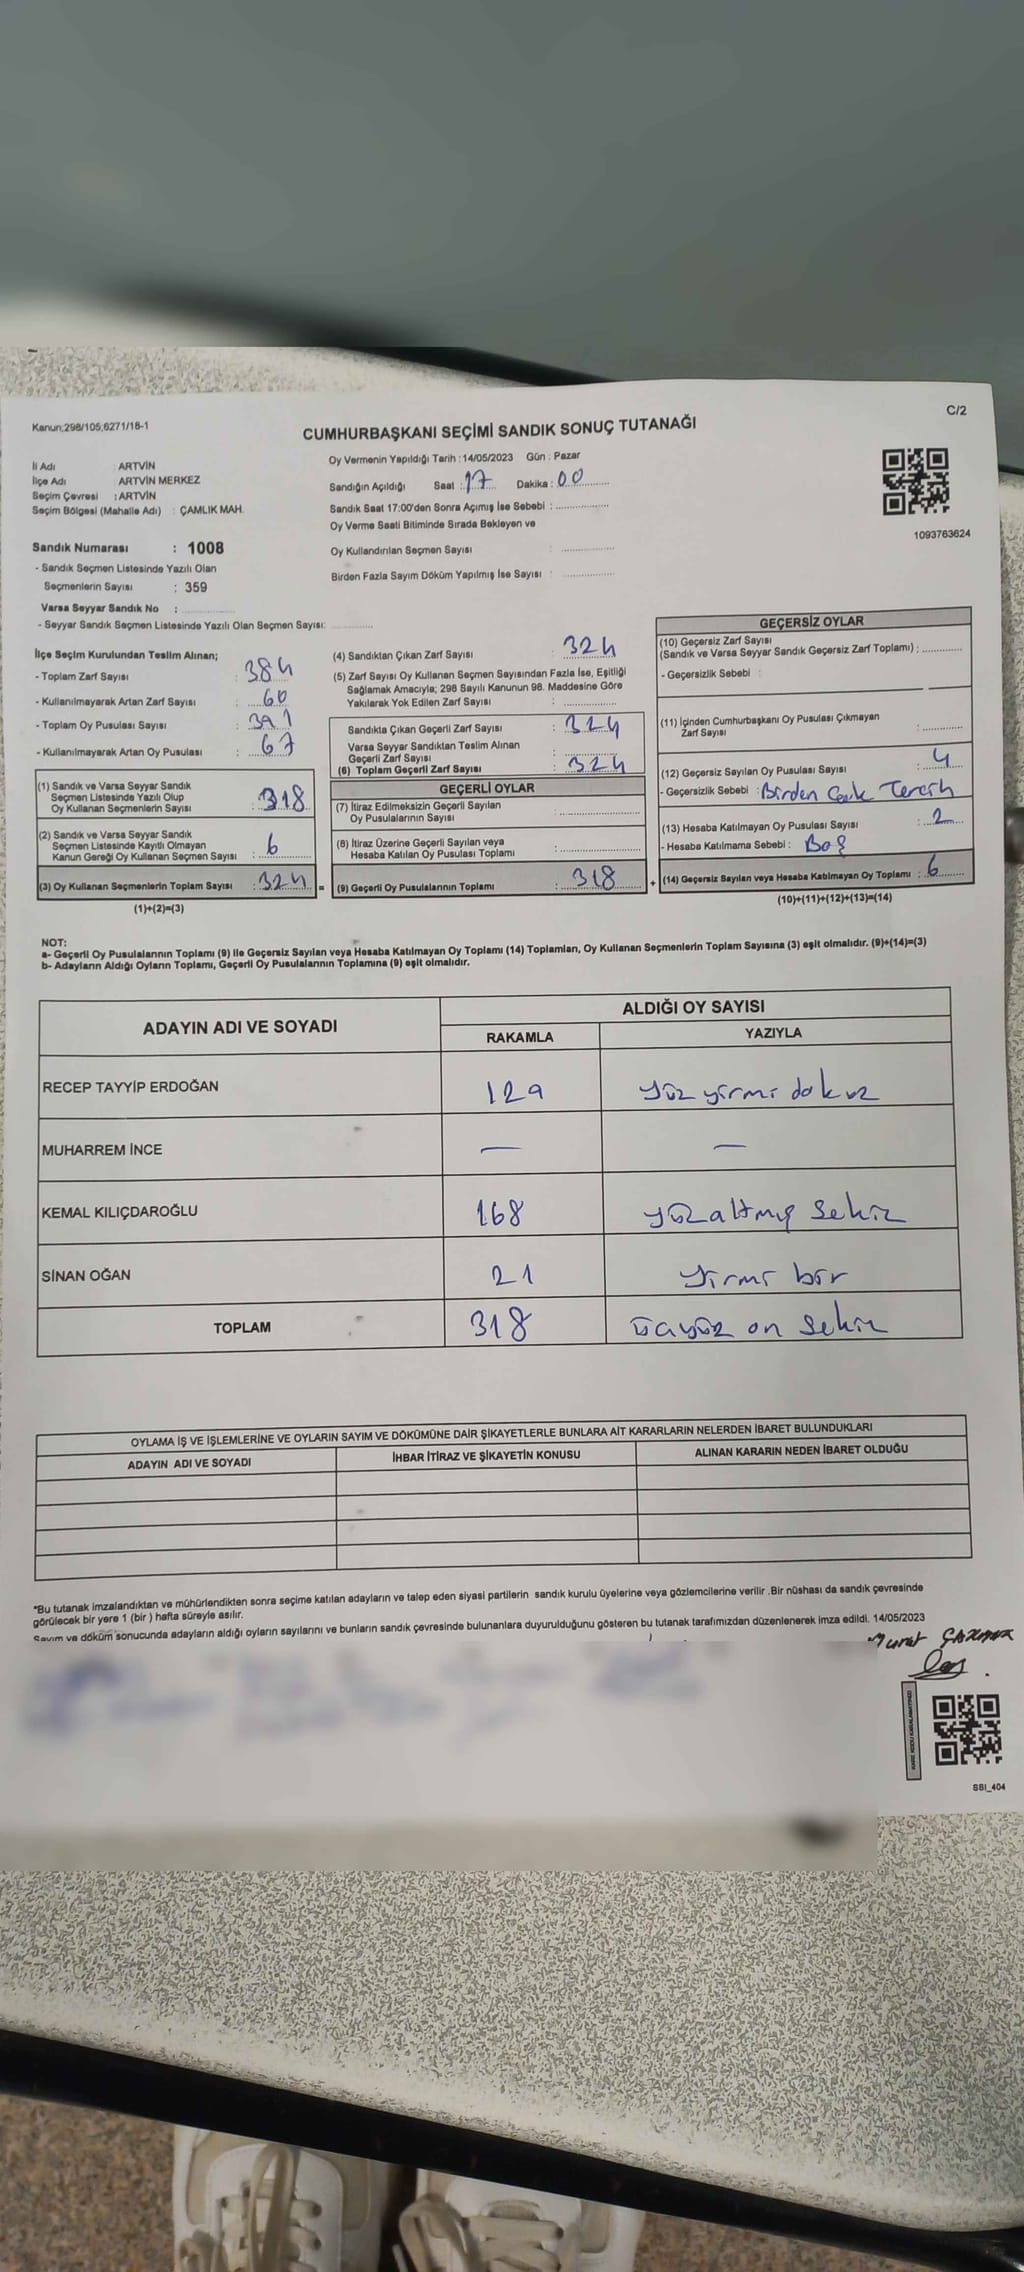 C/2
Kanun;298/105;6271/18-1
CUMHURBAŞKANI SEÇİMİ SANDIK SONUÇ TUTANAĞI
İl Adı : ARTVİN
İlçe Adı : ARTVİN MERKEZ
Seçim Çevresi : ARTVİN
Seçim Bölgesi (Mahalle Adı) : ÇAMLIK MAH.
Sandık Numarası : 1008
- Sandık Seçmen Listesinde Yazılı Olan
Seçmenlerin Sayısı : 359
Varsa Seyyar Sandık No :
- Seyyar Sandık Seçmen Listesinde Yazılı Olan Seçmen Sayısı:
Oy Vermenin Yapıldığı Tarih : 14/05/2023 Gün : Pazar
Sandığın Açıldığı Saat : 17 Dakika : 00
Sandık Saat 17:00'den Sonra Açımış İse Sebebi :
Oy Verme Saati Bitiminde Sırada Bekleyen ve
Oy Kullandırılan Seçmen Sayısı :
Birden Fazla Sayım Döküm Yapılmış İse Sayısı :
1093763624
İlçe Seçim Kurulundan Teslim Alınan;
- Toplam Zarf Sayısı : 384
- Kullanılmayarak Artan Zarf Sayısı : 60
- Toplam Oy Pusulası Sayısı : 391
- Kullanılmayarak Artan Oy Pusulası : 67
(1) Sandık ve Varsa Seyyar Sandık
Seçmen Listesinde Yazılı Olup
Oy Kullanan Seçmenlerin Sayısı : 318
(2) Sandık ve Varsa Seyyar Sandık
Seçmen Listesinde Kayıtlı Olmayan
Kanun Gereği Oy Kullanan Seçmen Sayısı : 6
(3) Oy Kullanan Seçmenlerin Toplam Sayısı : 324 =
(1)+(2)=(3)
(4) Sandıktan Çıkan Zarf Sayısı : 324
(5) Zarf Sayısı Oy Kullanan Seçmen Sayısından Fazla İse, Eşitliği
Sağlamak Amacıyla; 298 Sayılı Kanunun 98. Maddesine Göre
Yakılarak Yok Edilen Zarf Sayısı :
Sandıkta Çıkan Geçerli Zarf Sayısı : 324
Varsa Seyyar Sandıktan Teslim Alınan
Geçerli Zarf Sayısı :
(6) Toplam Geçerli Zarf Sayısı : 324
GEÇERLİ OYLAR
(7) İtiraz Edilmeksizin Geçerli Sayılan
Oy Pusulalarının Sayısı :
(8) İtiraz Üzerine Geçerli Sayılan veya
Hesaba Katılan Oy Pusulası Toplamı :
(9) Geçerli Oy Pusulalarının Toplamı : 318 +
GEÇERSİZ OYLAR
(10) Geçersiz Zarf Sayısı
(Sandık ve Varsa Seyyar Sandık Geçersiz Zarf Toplamı) :
- Geçersizlik Sebebi :
(11) İçinden Cumhurbaşkanı Oy Pusulası Çıkmayan
Zarf Sayısı :
(12) Geçersiz Sayılan Oy Pusulası Sayısı : 4
- Geçersizlik Sebebi : Birden Çok Tercih
(13) Hesaba Katılmayan Oy Pusulası Sayısı : 2
- Hesaba Katılmama Sebebi : Boş
(14) Geçersiz Sayılan veya Hesaba Katılmayan Oy Toplamı : 6
(10)+(11)+(12)+(13)=(14)
NOT:
a- Geçerli Oy Pusulalarının Toplamı (9) ile Geçersiz Sayılan veya Hesaba Katılmayan Oy Toplamı (14) Toplamları, Oy Kullanan Seçmenlerin Toplam Sayısına (3) eşit olmalıdır. (9)+(14)=(3)
b- Adayların Aldığı Oyların Toplamı, Geçerli Oy Pusulalarının Toplamına (9) eşit olmalıdır.
ADAYIN ADI VE SOYADI ALDIĞI OY SAYISI
RAKAMLA YAZIYLA
RECEP TAYYİP ERDOĞAN 129 yüz yirmi dokuz
MUHARREM İNCE — —
KEMAL KILIÇDAROĞLU 168 yüzaltmış sekiz
SİNAN OĞAN 21 yirmi bir
TOPLAM 318 üçyüz on sekiz
OYLAMA İŞ VE İŞLEMLERİNE VE OYLARIN SAYIM VE DÖKÜMÜNE DAİR ŞİKAYETLERLE BUNLARA AİT KARARLARIN NELERDEN İBARET BULUNDUKLARI
ADAYIN ADI VE SOYADI İHBAR İTİRAZ VE ŞİKAYETİN KONUSU ALINAN KARARIN NEDEN İBARET OLDUĞU
*Bu tutanak imzalandıktan ve mühürlendikten sonra seçime katılan adayların ve talep eden siyasi partilerin sandık kurulu üyelerine veya gözlemcilerine verilir .Bir nüshası da sandık çevresinde
görülecek bir yere 1 (bir ) hafta süreyle asılır.
Sayım ve döküm sonucunda adayların aldığı oyların sayılarını ve bunların sandık çevresinde bulunanlara duyurulduğunu gösteren bu tutanak tarafımızdan düzenlenerek imza edildi. 14/05/2023
Murat
SBI_404